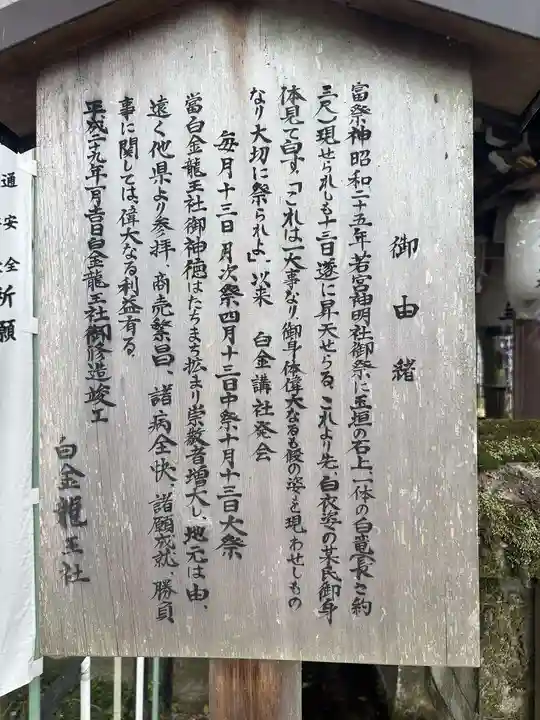 御由緒
富祭神昭和二十五年若宮神明社御祭に玉垣の石上、一体の白竜(長さ約
三尺)現せられしも十三日遂に昇天せらる、これより先、白衣姿の某氏御身
体見て曰す、「これは一大事なり、御身体偉大なるも仮の姿を現わせしもの
なり大切に祭られよ」、以来 白金講社発会
毎月十三日月次祭四月十三日中祭十月十三日大祭
當白金龍王社御神徳はたちまち拡まり崇敬者増大し、地元は由、
遠く他県より参拝、商売繁昌、諸病全快、諸願成就、勝負
事に関しては偉大なる利益有る、
平成二十九年一月吉日白金龍王社御修造竣工
白金龍王社
通安全祈願